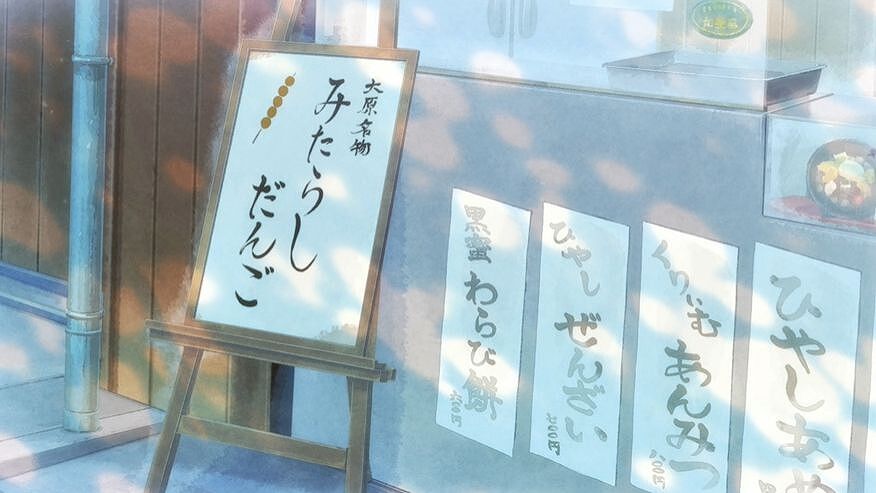 大原名物
みたらし
だんご
黒蜜 わらび餅
ひやし ぜんざい
くりぃむ あんみつ
八〇〇円
ひやしあ